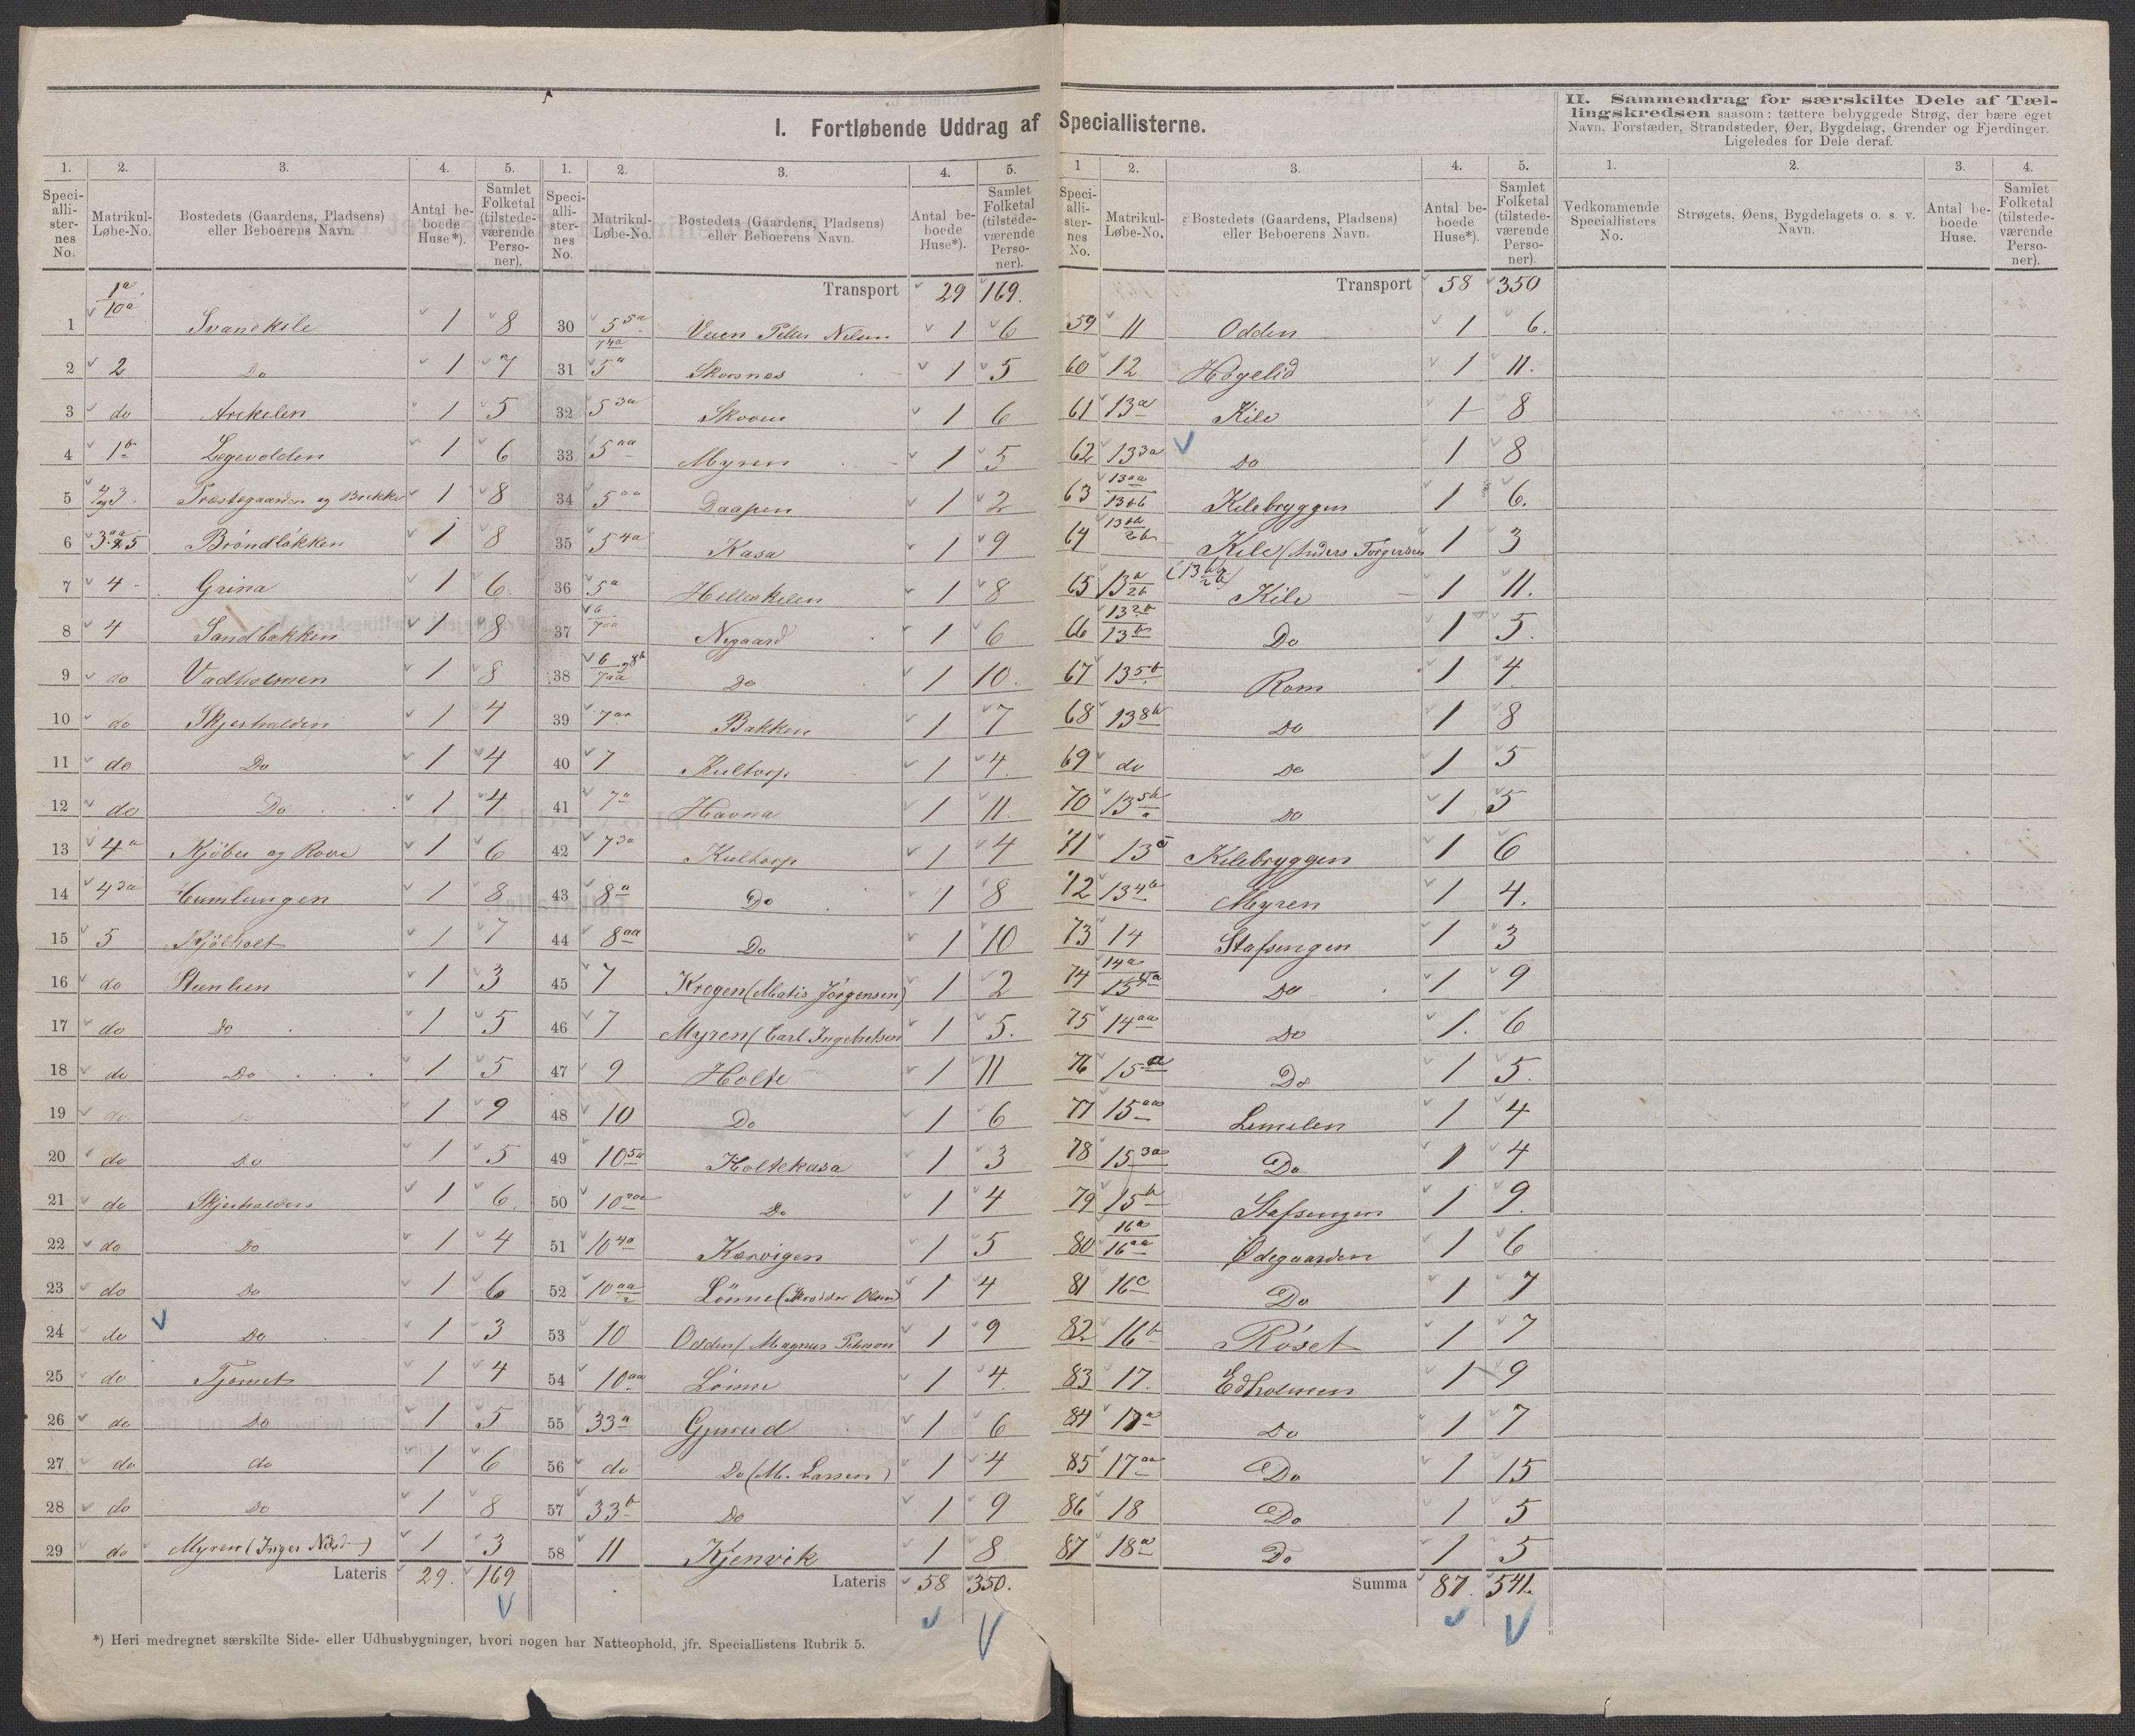 I. Fortløbende Uddrag af Speciallisterne.
II. Sammendrag for særskilte Dele af Tæl-
lingskredsen saasom: tættere bebyggede Strøg, der bære eget
Navn, Forstæder, Strandsteder, Øer, Bygdelag, Grender og Fjerdinger.
Ligeledes for Dele deraf.
1. 2. 3. 4. 5.
Speci-alli-ster-nes No. Matrikul-Løbe-No. Bostedets (Gaardens, Pladsens) eller Beboerens Navn. Antal be-boede Huse*). Samlet Folketal (tilstede-værende Perso-ner).
1 1a 10a Svanekile 1 8
2 2 Do 1 7
3 do Arekilen 1 5
4 1b Legevolden 1 6
5 Præstegaarden og Brekke 1 8
6 Bröndløkken 1 8
7 4 Grina 1 6
8 4 Sandbakken 1 8
9 do Vadholmen 1 8
10 do Skjerhalden 1 4
11 do Do 1 4
12 do Do 1 4
13 4a Kjöbu og Rove 1 6
14 43a Humlungen 1 8
15 5 Kjölholt 1 7
16 do Stenlien 1 3
17 do Do 1 5
18 do Do 1 5
19 do Do 1 9
20 do Do 1 5
21 do Skjerhalden 1 6
22 do Do 1 4
23 do Do 1 6
24 do Do 1 3
25 do Tjernet 1 4
26 do Do 1 5
27 do do 1 6
28 do Do 1 8
29 do Myren (Inger 1 3
Lateris 29. 169
1. 2. 3. 4. 5.
Speci-alli-ster-nes No. Matrikul-Løbe-No. Bostedets (Gaardens, Pladsens) eller Beboerens Navn. Antal be-boede Huse*). Samlet Folketal (tilstede-værende Perso-ner).
Transport 29 169.
30 55a 74a Nilsen 1 6
31 5a Skorsnes 1 5
32 53a Skoven 1 6
33 5aa Myren 1 5
34 5aa Daapen 1 2
35 54a Kasa 1 9
36 5a Helleskilen 1 8
37 6 7aa Nygaard 1 6
38 6 7aa 8b Do 1 10.
39 7aa Bakken 1 7
40 7 Kultorp 1 4
41 7a Havna 1 11
42 73a Kultorp 1 4
43 8a Do 1 8
44 8aa Do 1 10
45 7 Krogen (Matis Jörgensen) 1 2
46 7 Myren (Carl Ingebretsen 1 5.
47 9 Holte 1 11
48 10 Do 1 6
49 105a Holtekasa 1 3
50 Do 1 4
51 104a Kærvigen 1 5
52 10aa Lönne ( Olsen) 1 4
53 10 Odden (Magnus Peterson 1 9
54 10aa Lönne 1 4.
55 33a Gjurud 1 6
56 do Do (M. Larsen) 1 4
57 33b Do 1 9
58 11 Kjenvik 1 8
Lateris 58 350.
1 2. 3. 4. 5.
Speci-alli-ster-nes No. Matrikul-Løbe-No. Bostedets (Gaardens, Pladsens) eller Beboerens Navn. Antal be-boede Huse*). Samlet Folketal (tilstede-værende Perso-ner).
Transport 58 350
59 11 Odden 1 6.
60 12 Høgelid 1 11.
61 13a Kile 1 8
62 133a Do 1 8
63 13aa 13bb Kilebryggen 1 6.
64 Kile (Anders Torgersen 1 3
65 13a 2b Kile 1 11.
66 132b 13b Do 1 5.
67 135b Rom 1 4
68 138b Do 1 8
69 do Do 1 5
70 135b Do 1 5
71 Kilebryggen 1 6
72 134b Myren 1 4.
73 14 Stafsengen 1 3
74 14a Do 1 9
75 14aa Do 1. 6
76 15a Do 1 5.
77 15aa Lemelen 1 4
78 153a Do 1 4
79 15b Stafsengen 1 9.
80 16a 16aa Ödegaarden 1 6
81 16c Do 1 7
82 16b Röset 1 7
83 17. Edholmen 1 9
84 17a Do 1 7
85 17aa Do 1 15
86 18 Do 1 5
87 18a Do 1 5
Summa 87. 541.
1. 2. 3. 4.
Vedkommende Speciallisters No. Strøgets, Øens, Bygdelagets o. s. v. Navn. Antal be-boede Huse. Samlet Folketal (tilstede-værende Perso-ner).
*) Heri medregnet særskilte Side- eller Udhusbygninger, hvori nogen har Natteophold, jfr. Speciallistens Rubrik 5.